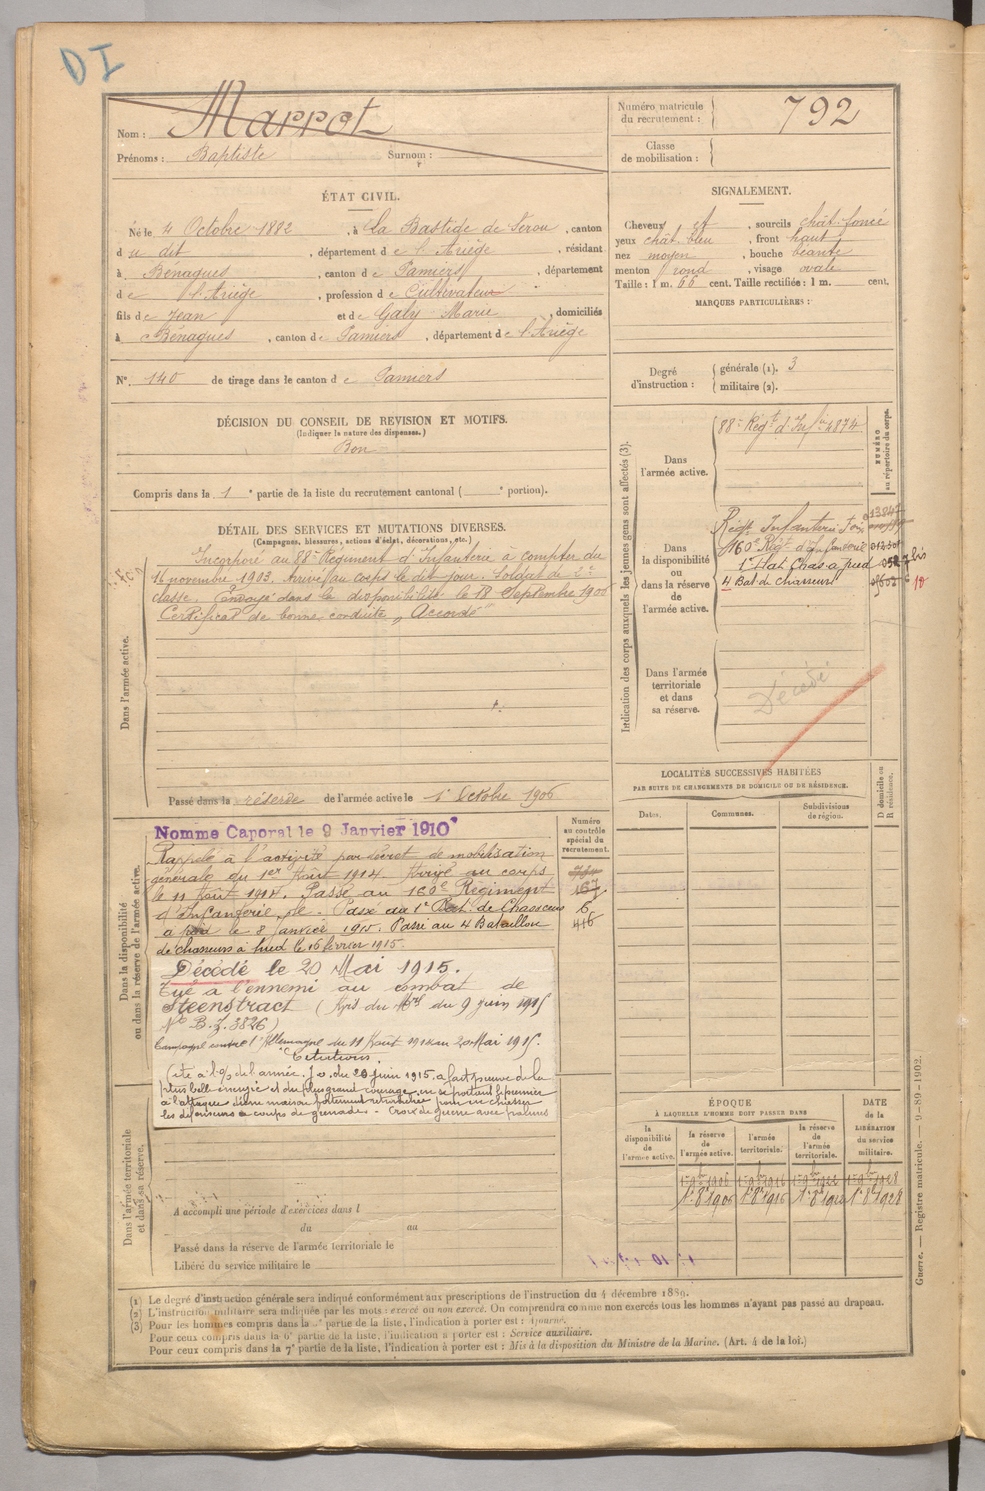 DI
Nom : Marrot
Prénoms : Baptiste Surnom :
Numéro matricule du recrutement : 792
Classe de mobilisation :
ÉTAT CIVIL.
Né le 4 Octobre 1882, à La Bastide de Sérou, canton
du dit, département de l'Ariège, résidant
à Bénagues, canton de Pamiers, département
de l'Ariège, profession de Cultivateur
fils de Jean et de Galy Marie, domiciliés
à Bénagues, canton de Pamiers, département de l'Ariège
N° 140 de tirage dans le canton de Pamiers
SIGNALEMENT.
Cheveux et, sourcils chât. foncé
yeux chât. bleu, front haut
nez moyen, bouche béante
menton rond, visage ovale
Taille : 1 m. 66 cent. Taille rectifiée : 1 m. cent.
MARQUES PARTICULIÈRES :
Degré d'instruction : générale (1). 3
militaire (2).
DÉCISION DU CONSEIL DE REVISION ET MOTIFS.
(Indiquer la nature des dispenses.)
Bon
Compris dans la 1e partie de la liste du recrutement cantonal ( e portion).
DÉTAIL DES SERVICES ET MUTATIONS DIVERSES.
(Campagnes, blessures, actions d'éclat, décorations, etc.)
Dans l'armée active.
Incorporé au 88e Régiment d'Infanterie à compter du
16 novembre 1903. Arrivé au corps le dit jour. Soldat de 2e
classe. Envoyé dans la disponibilité le 18 Septembre 1906
Certificat de bonne conduite "Accordé"
Passé dans la réserve de l'armée active le 1er Octobre 1906
Indication des corps auxquels les jeunes gens sont affectés (3).
NUMÉRO au répertoire du corps.
Dans l'armée active.
88e Régt d'Infie 4874
Dans la disponibilité ou dans la réserve de l'armée active.
Régt Infanterie Foix
160e Régt d'Infanterie
1er Bat Chas à pied
4 Bat de chasseurs
Dans l'armée territoriale et dans sa réserve.
Décédé
LOCALITÉS SUCCESSIVES HABITÉES
PAR SUITE DE CHANGEMENTS DE DOMICILE OU DE RÉSIDENCE.
Dates. Communes. Subdivisions de région. D domicile ou R résidence.
Dans la disponibilité ou dans la réserve de l'armée active.
Numéro au contrôle spécial du recrutement.
167
6
416
Nomme Caporal le 9 Janvier 1910
Rappelé à l'activité par décret de mobilisation
générale du 1er Août 1914. Arrivé au corps
le 11 Août 1914. Passé au 160e Régiment
d'Infanterie le. Passé au 1er Bat. de Chasseurs
à pied le 8 Janvier 1915. Passé au 4 Bataillon
de chasseurs à pied le 16 février 1915.
Décédé le 20 Mai 1915.
Tué à l'ennemi au combat de
Steenstract (Avis du Mel du 9 juin 1915
No B.Z. 3826)
Campagne contre l'Allemagne du 11 Août 1914 au 20 Mai 1915.
Citations.
Cité à l'o/ de l'armée. J.o. du 20 juin 1915, a fait preuve de la
plus belle énergie et du plus grand courage en se portant le premier
à l'attaque d'une maison fortement retranchée pour en chasser
les défenseurs à coups de grenades - Croix de guerre avec palmes
Dans l'armée territoriale et dans sa réserve.
A accompli une période d'exercices dans l
du au
Passé dans la réserve de l'armée territoriale le
Libéré du service militaire le
ÉPOQUE
À LAQUELLE L'HOMME DOIT PASSER DANS
la disponibilité de l'armée active. la réserve de l'armée active. l'armée territoriale. la réserve de l'armée territoriale.
DATE de la LIBÉRATION du service militaire.
1 9bre 1906 1 9bre 1916 1 9bre 1922 1 9bre 1928
1er 8bre 1906 1er 8bre 1916 1er 8bre 1922 1er 8bre 1928
(1) Le degré d'instruction générale sera indiqué conformément aux prescriptions de l'instruction du 4 décembre 1889.
(2) L'instruction militaire sera indiquée par les mots : exercé ou non exercé. On comprendra comme non exercés tous les hommes n'ayant pas passé au drapeau.
(3) Pour les hommes compris dans la partie de la liste, l'indication à porter est : Ajourné.
Pour ceux compris dans la 6e partie de la liste, l'indication à porter est : Service auxiliaire.
Pour ceux compris dans la 7e partie de la liste, l'indication à porter est : Mis à la disposition du Ministre de la Marine. (Art. 4 de la loi.)
Guerre. — Registre matricule. — 9-89-1902.